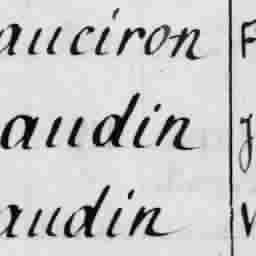 auciron F
audin J
audin V